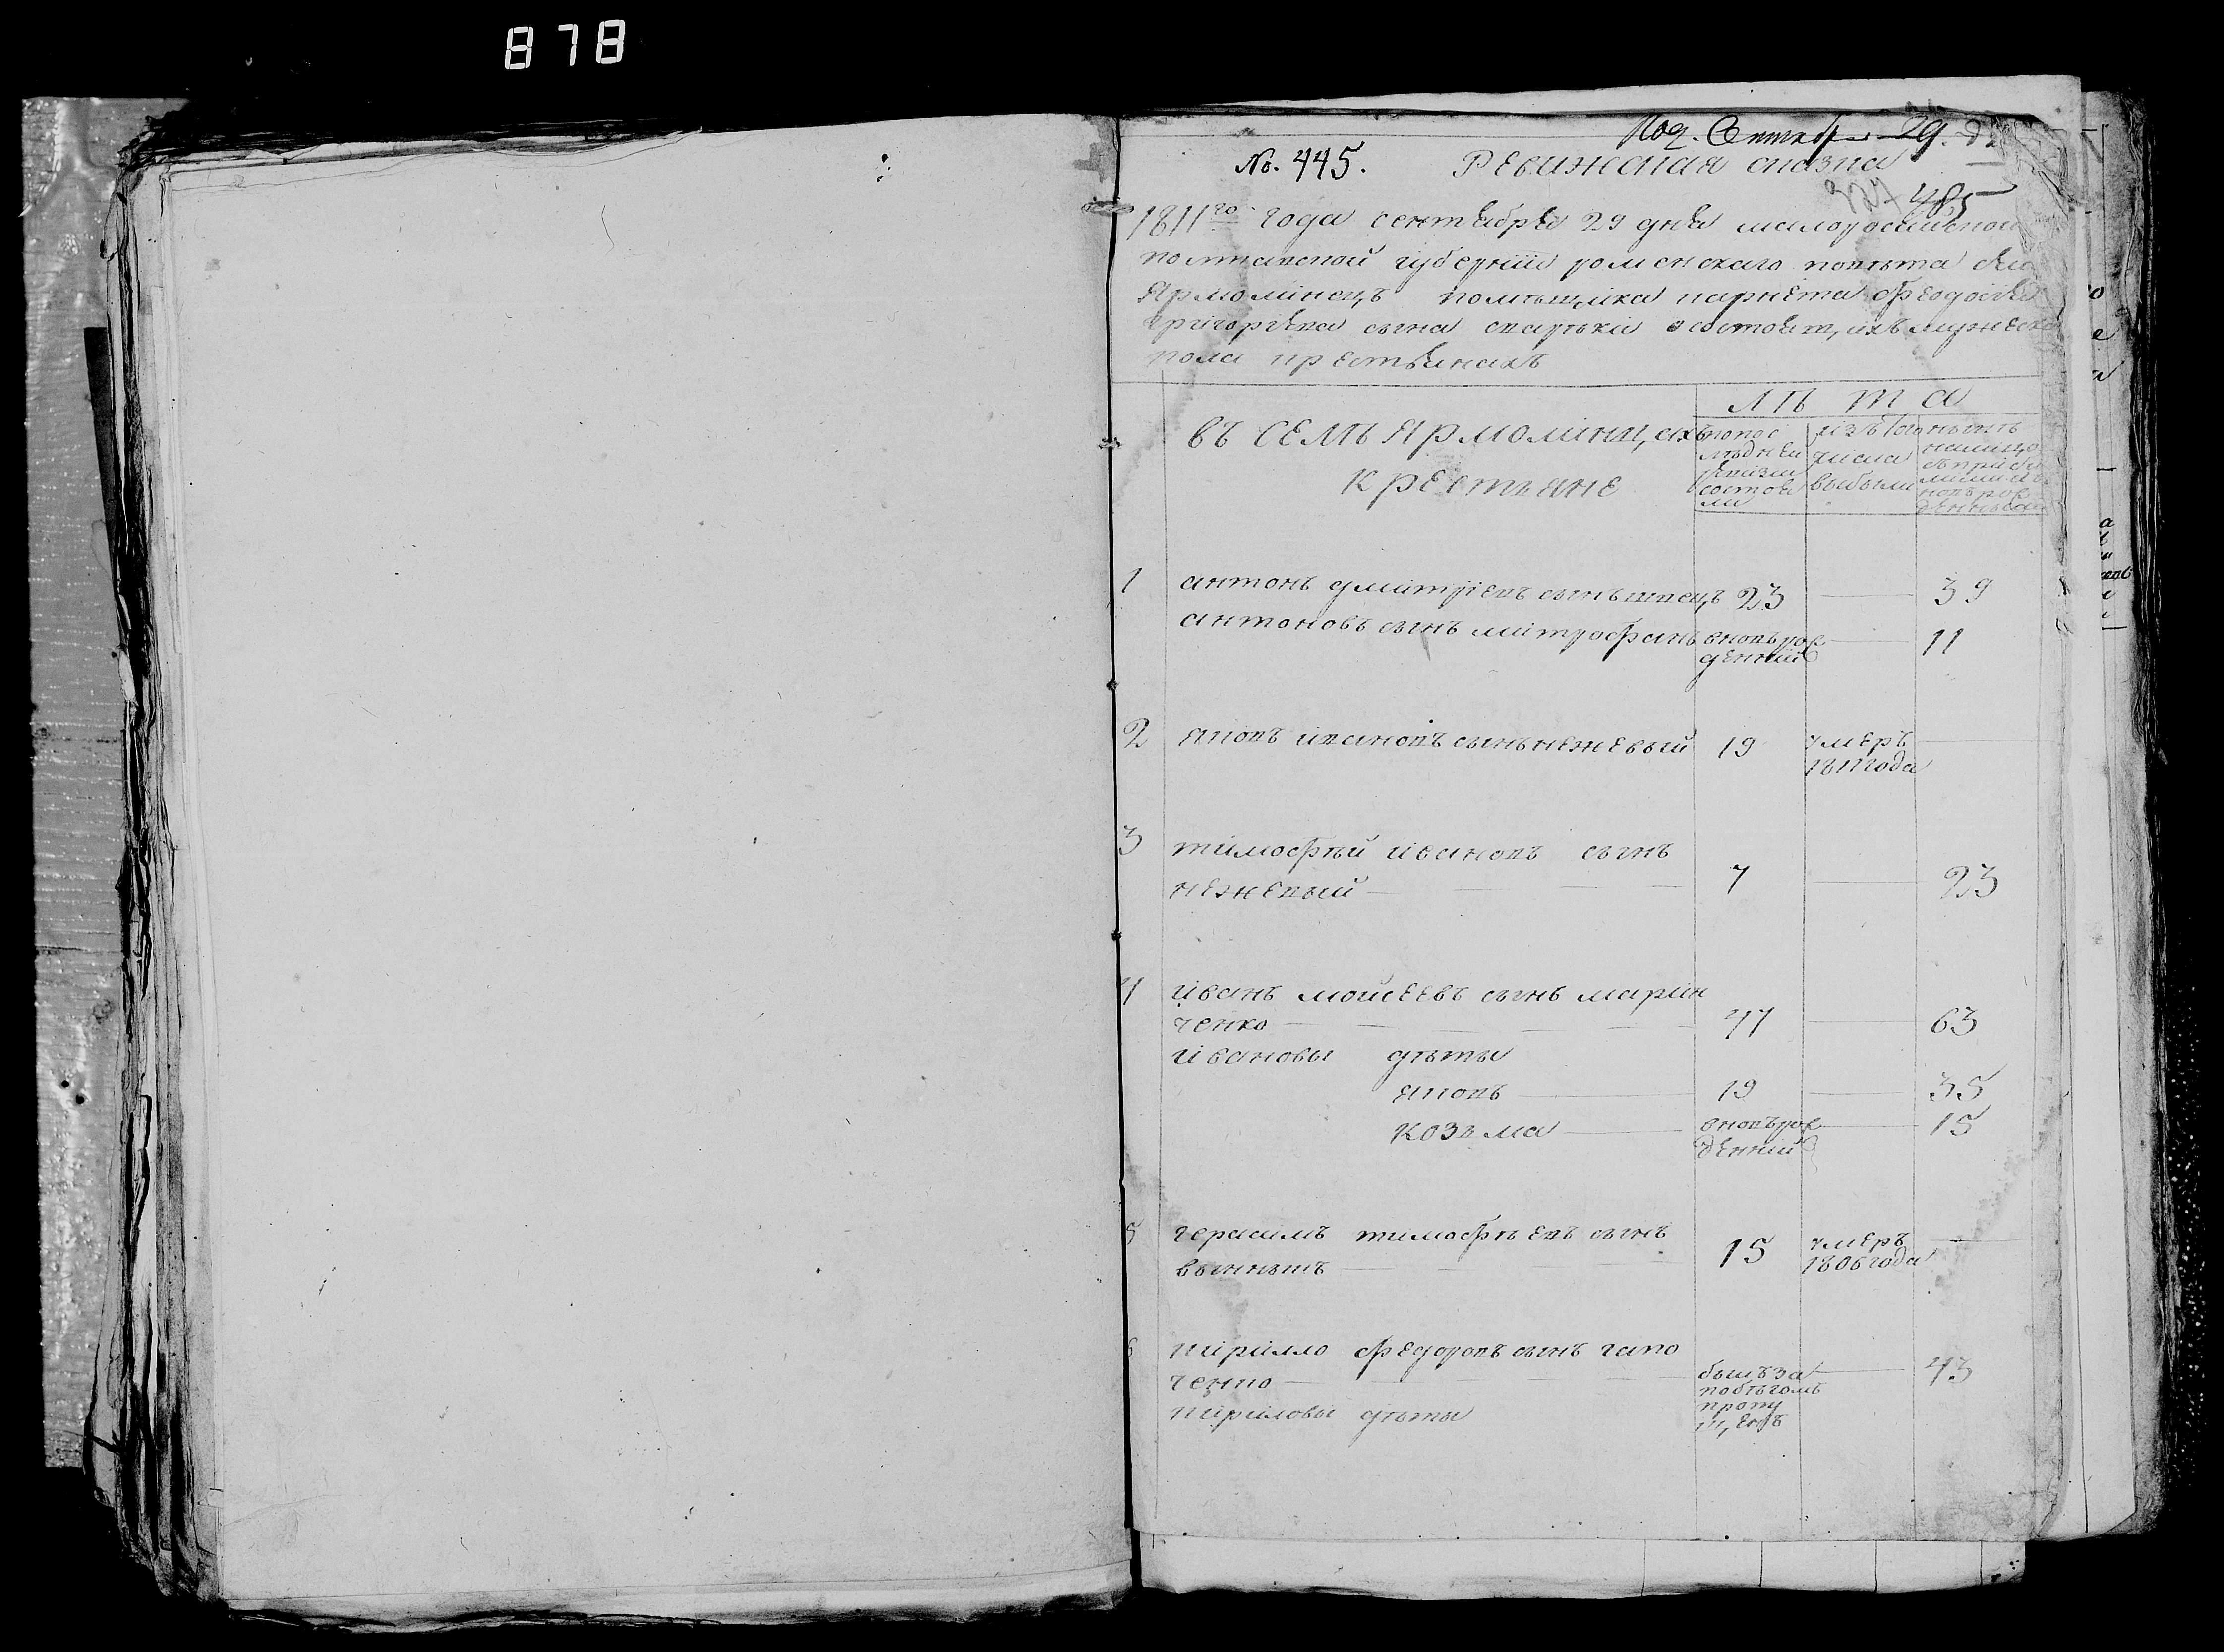 878
Под. Сентября 29. д
No. 445. Ревижская сказка
327 485
1811го года сентября 29 дня малоросийской
полтавской губернии роменского повета села
Ярмолинец помещика карнета Феодосея
григорьева сына о состоящих мужеска
пола крестьянах
въ селѣ Ярмолинцахъ
крестьяне
лѣта
по последней ревизии состояли
изъ того числа выбыли
ныне налицо
1 антонъ дмитріевъ сынъ швецъ 23 39
антоновъ сынъ митрофанъ вновьрожденній 11
2 яковъ ивановъ сынъ нежевый 19 умеръ 1811 года
3 тимофѣй ивановъ сынъ
нежевый 7 23
4 иванъ мойсеевъ сынъ марин
ченко 47 63
ивановы дѣты
яковъ 19 35
козьма вновьрожденній 15
5 герасимъ тимофѣевъ сынъ
15 умеръ 1806 года
6 кирилло федоровъ сынъ гапо
ченко былъ за побѣгомъ пропущенъ 43
кириловы дѣты